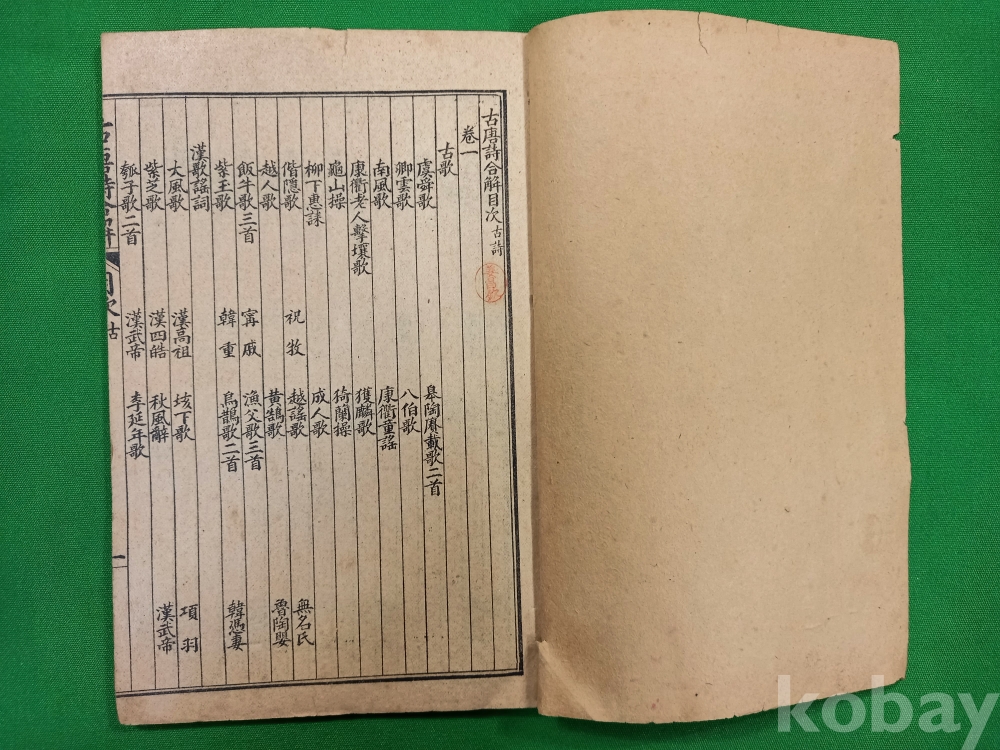 古唐詩合解目次 古詩
卷一
古歌
虞舜歌 皋陶賡載歌二首
卿雲歌 八伯歌
南風歌 康衢童謠
康衢老人擊壤歌 獲麟歌
龜山操 猗蘭操
柳下惠誄 成人歌
偕隱歌 祝牧 越謠歌 無名氏
越人歌 黃鵠歌 魯陶嬰
飯牛歌三首 甯戚 漁父歌三首
紫玉歌 韓重 烏鵲歌二首 韓馮妻
漢歌謠詞
大風歌 漢高祖 垓下歌 項羽
紫芝歌 漢四皓 秋風辭 漢武帝
瓠子歌二首 漢武帝 李延年歌
目次 古 一
kobay